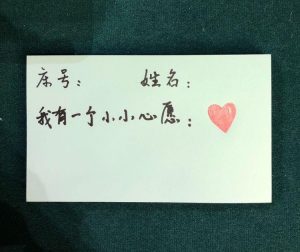 床号： 姓名：
我有一个小小心愿：